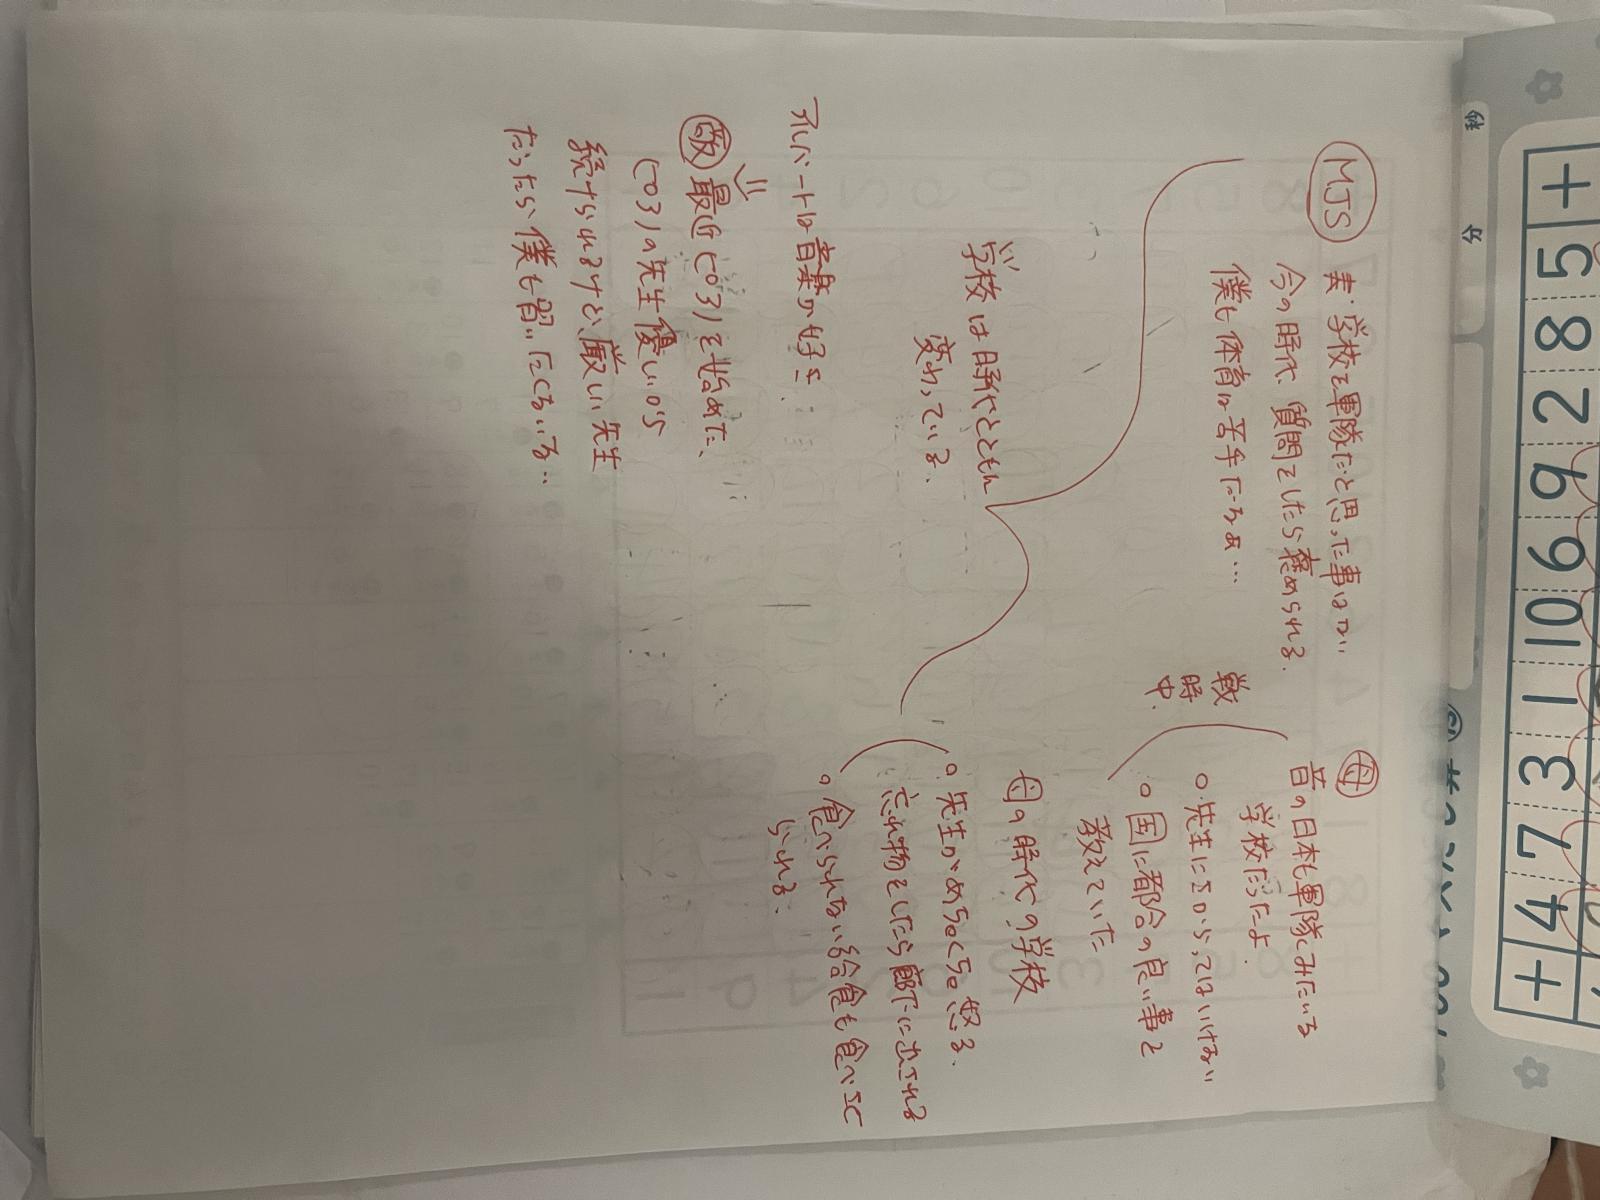 MJS
実・学校を軍隊だと思った事はない
今の時代、質問をしたら褒められる.
僕も体育は苦手だなぁ…
母
昔の日本も軍隊みたいな
学校だったよ.
戦時中.
○先生にさからってはいけない
○国に都合の良い事を
教えていた
母の時代の学校
○先生がめちゃくちゃ怒る.
忘れ物をしたら廊下に出される
○食べられない給食も食べさせ
られる.
学校は時代とともに
変わっている.
アルバートは音楽が好き.
最近ピアノを始めた、
ピアノの先生優しいから
続けられるけど、厳しい先生
だったら、僕も習いたくないな..
秒
分
+ 5 8 2 9 6 10 1 3 7 4 +